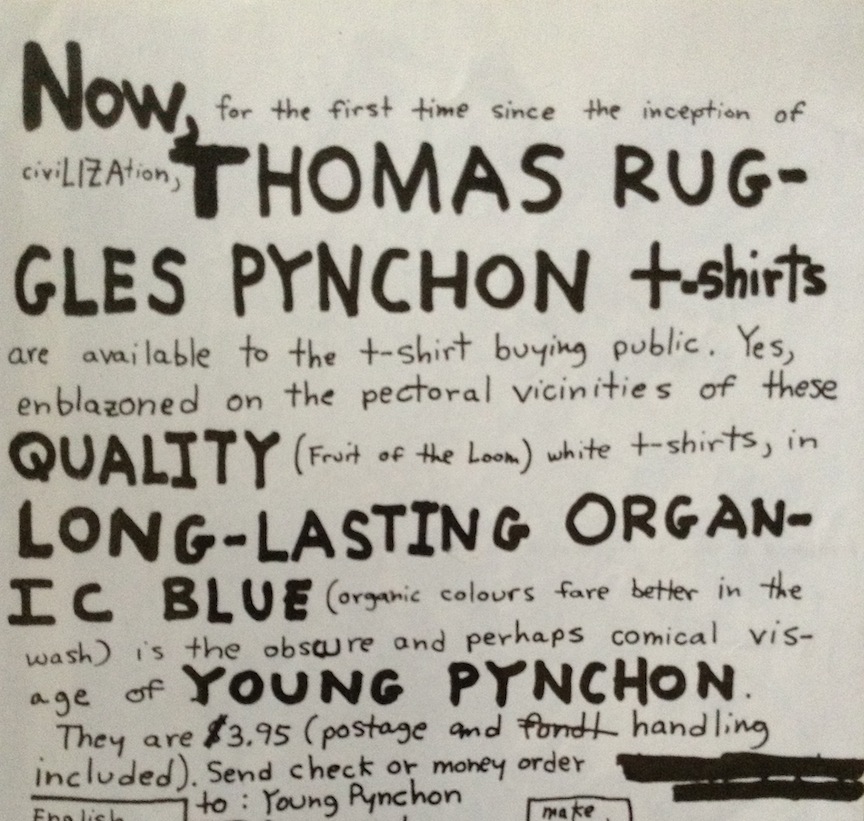 Now, for the first time since the inception of
civiLIZAtion, THOMAS RUG-
GLES PYNCHON t-shirts
are available to the t-shirt buying public. Yes,
enblazoned on the pectoral vicinities of these
QUALITY (Fruit of the Loom) white t-shirts, in
LONG-LASTING ORGAN-
IC BLUE (organic colours fare better in the
wash) is the obscure and perhaps comical vis-
age of YOUNG PYNCHON.
They are $3.95 (postage and handling
included). Send check or money order
to: Young Pynchon
English
make